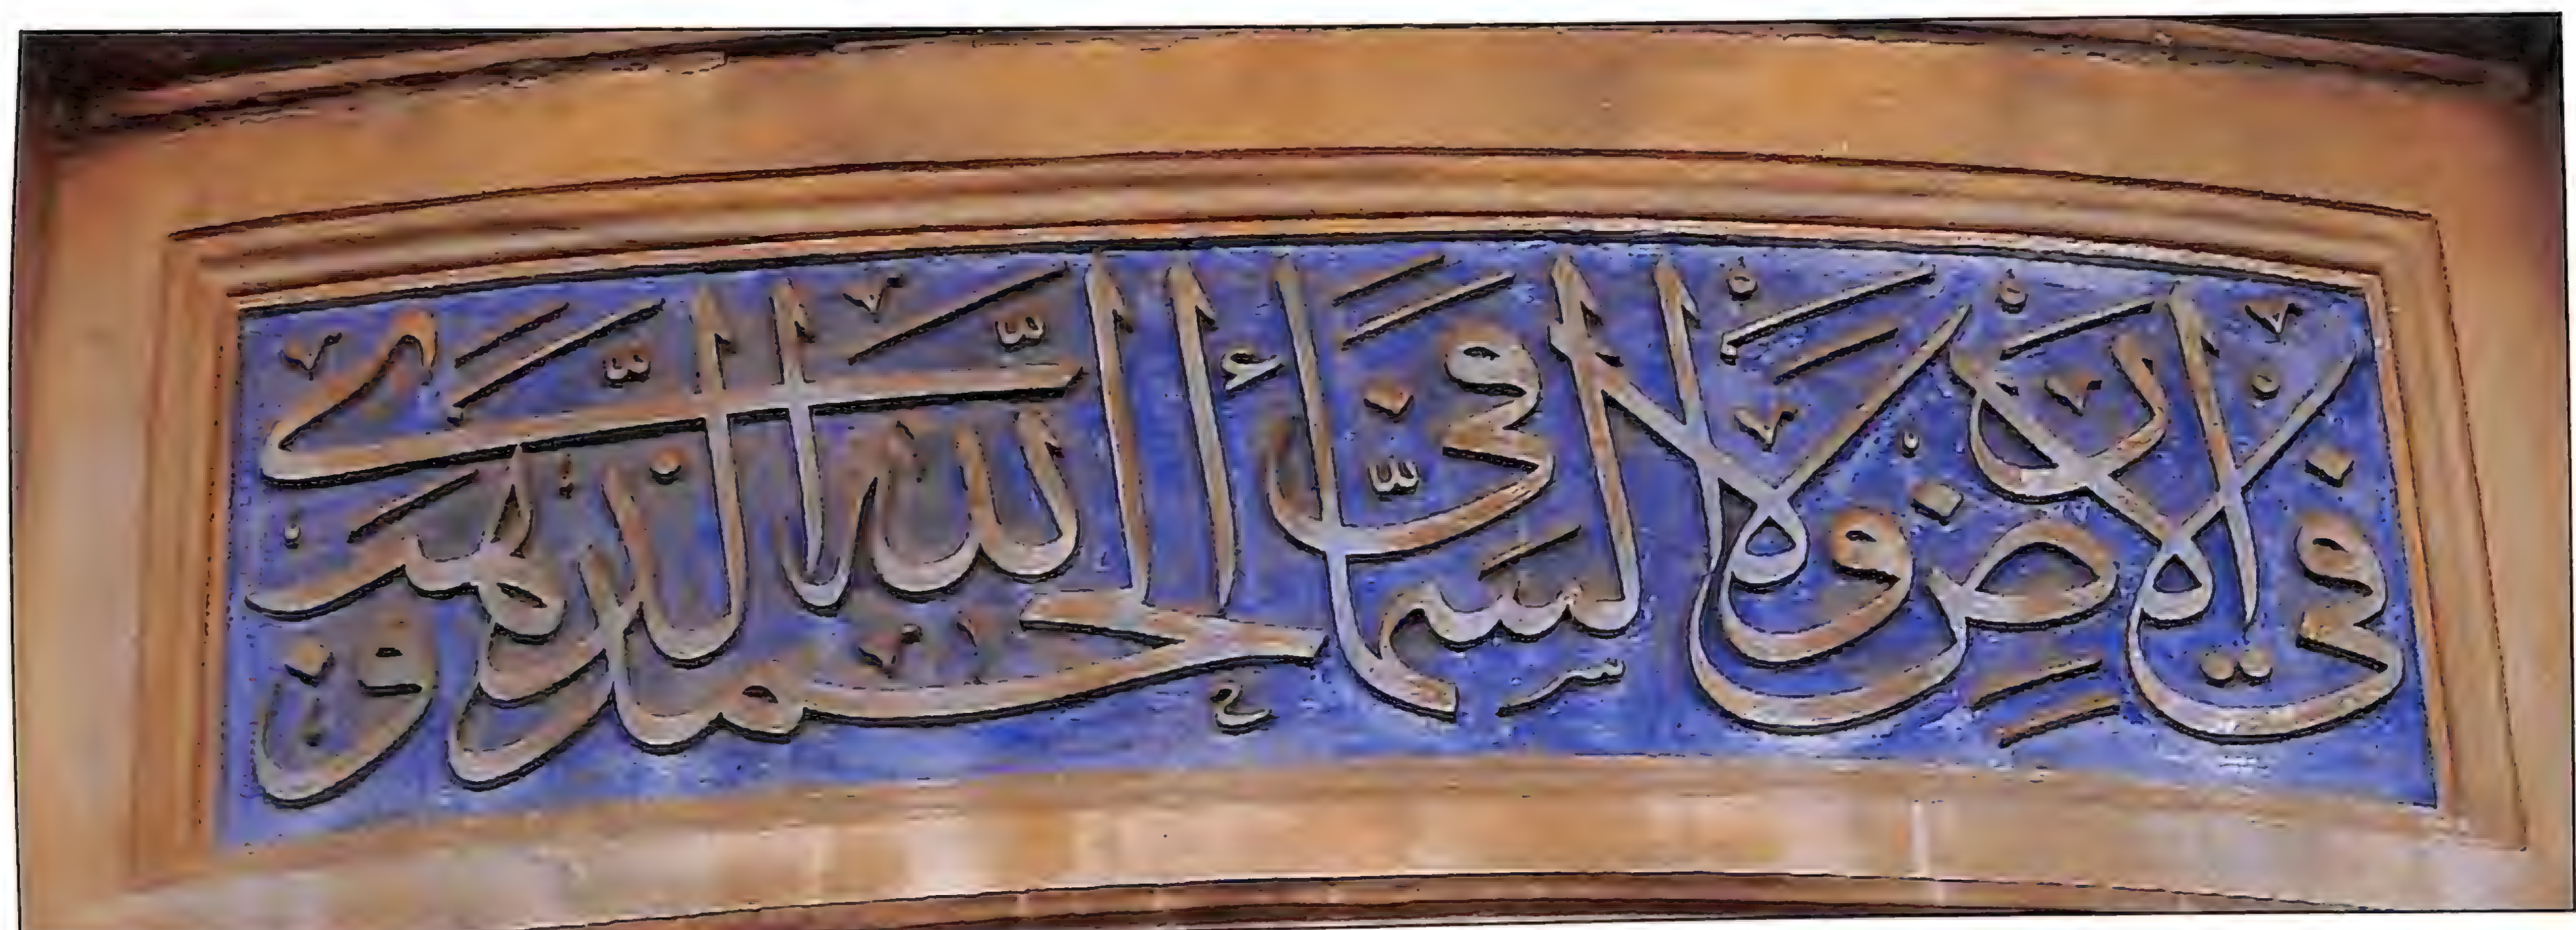 في الأرض ولا في السماء الحمد لله الذي وهب